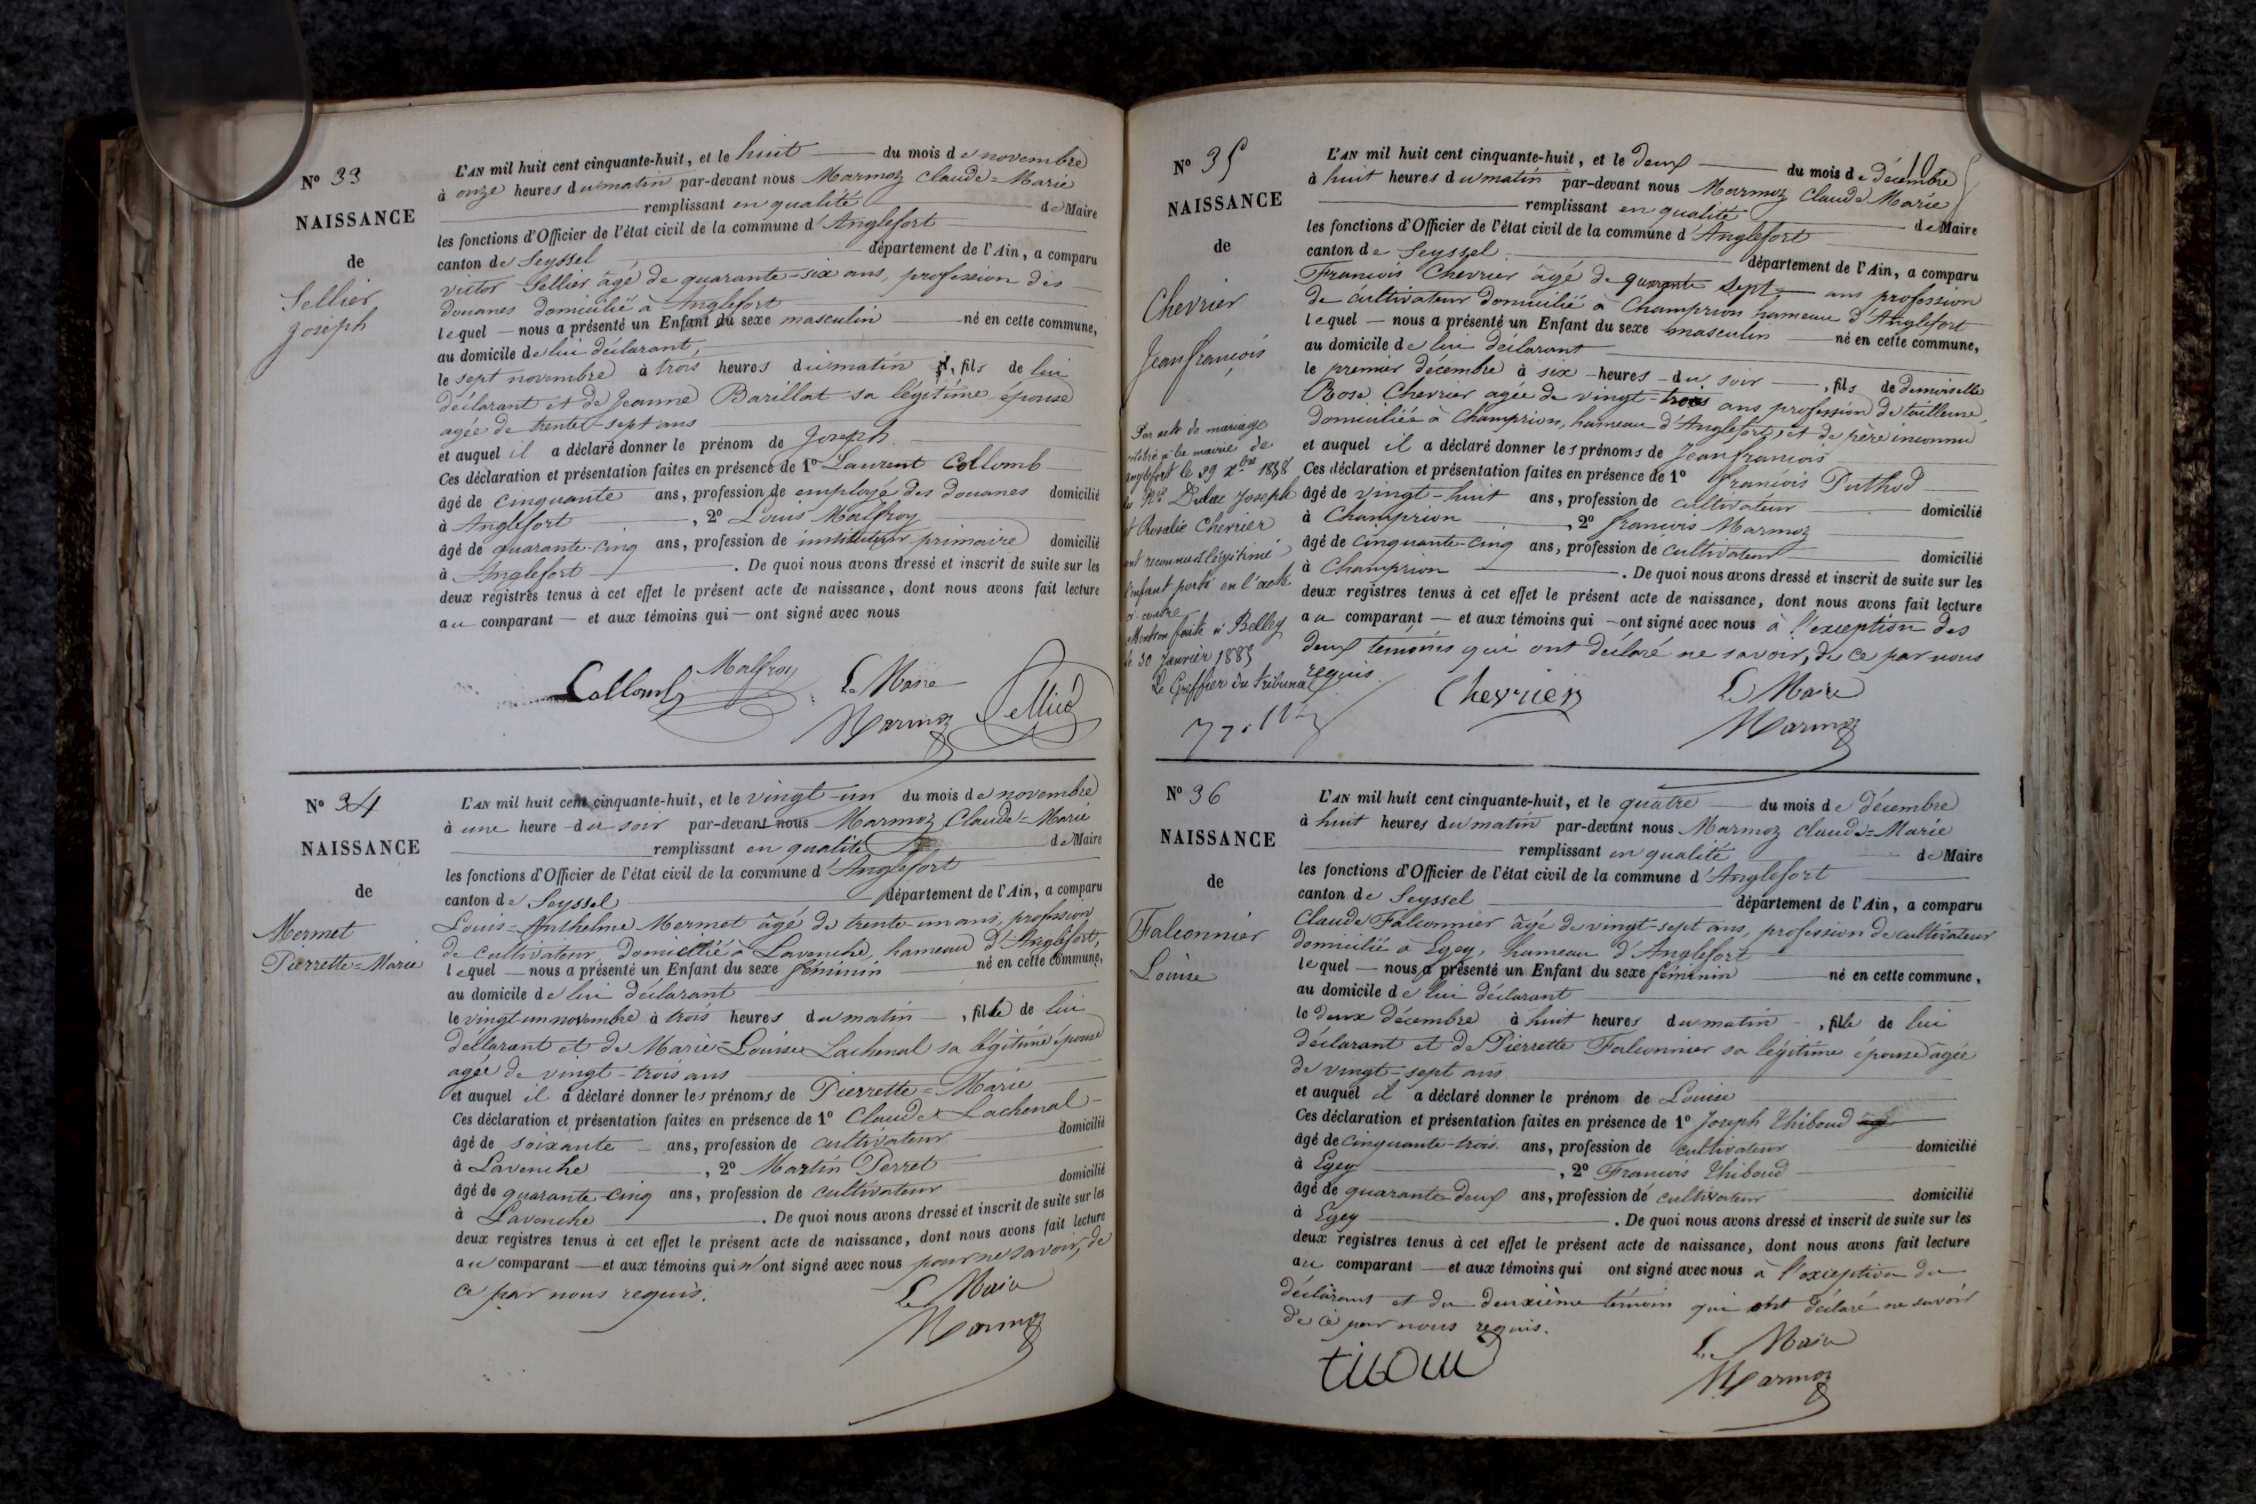 Nº 33
NAISSANCE
de
Sellier
Joseph
L'AN mil huit cent cinquante-huit, et le huit du mois de novembre
à onze heures du matin par-devant nous Marmoz Claude=Marie
remplissant en qualité de Maire
les fonctions d'Officier de l'état civil de la commune d'Anglefort
canton de Seyssel département de l'Ain, a comparu
victor Sellier âgé de quarante-six ans, profession des
douanes domicilié à Anglefort
lequel nous a présenté un Enfant du sexe masculin né en cette commune,
au domicile de lui déclarant,
le sept novembre à trois heures du matin, fils de lui
déclarant et de Jeanne Barillat sa légitime épouse
agée de trente-sept ans
et auquel il a déclaré donner le prénom de Joseph
Ces déclaration et présentation faites en présence de 1º Laurent Collomb
âgé de cinquante ans, profession de employé des douanes domicilié
à Anglefort, 2º Louis Malfroy
âgé de quarante-cinq ans, profession de instituteur primaire domicilié
à Anglefort. De quoi nous avons dressé et inscrit de suite sur les
deux registres tenus à cet effet le présent acte de naissance, dont nous avons fait lecture
au comparant et aux témoins qui ont signé avec nous
Collomb Malfroy Le Maire Sellier
Marmoz
Nº 34
NAISSANCE
de
Mermet
Pierrette=Marie
L'AN mil huit cent cinquante-huit, et le vingt-un du mois de novembre
à une heure du soir par-devant nous Marmoz Claude=Marie
remplissant en qualité de Maire
les fonctions d'Officier de l'état civil de la commune d'Anglefort
canton de Seyssel département de l'Ain, a comparu
Louis=Anthelme Mermet âgé de trente un ans, profession
de cultivateur, domicilié à Lavenche, hameau d'Anglefort,
lequel nous a présenté un Enfant du sexe féminin né en cette commune,
au domicile de lui déclarant
le vingt-un novembre à trois heures du matin, fille de lui
déclarant et de Marie=Louise Lachenal sa légitime épouse
agée de vingt-trois ans
et auquel il a déclaré donner les prénoms de Pierrette=Marie
Ces déclaration et présentation faites en présence de 1º Claude Lachenal
âgé de soixante ans, profession de cultivateur domicilié
à Lavenche, 2º Martin Perret
âgé de quarante-cinq ans, profession de cultivateur domicilié
à Lavenche. De quoi nous avons dressé et inscrit de suite sur les
deux registres tenus à cet effet le présent acte de naissance, dont nous avons fait lecture
au comparant et aux témoins qui n'ont signé avec nous pour ne savoir, de
ce par nous requis.
Le Maire
Marmoz
Nº 35
NAISSANCE
de
Chevrier
Jean françois
Par acte de mariage
célébré à la mairie de
anglefort le 29 Xbre 1858
Joseph
et Rosalie Chevrier
ont reconnu et légitimé
l'enfant porté en l'acte
ci contre
Mention faite à Belley
le 30 Janvier 1883
Le Greffier du tribunal
L'AN mil huit cent cinquante-huit, et le deux du mois de décembre
à huit heures du matin par-devant nous Marmoz Claude Marie
remplissant en qualité de Maire
les fonctions d'Officier de l'état civil de la commune d'Anglefort
canton de Seyssel département de l'Ain, a comparu
François Chevrier âgé de quarante sept ans profession
de cultivateur domicilié à Champrion hameau d'Anglefort
lequel nous a présenté un Enfant du sexe masculin né en cette commune,
au domicile de lui déclarant
le premier décembre à six heures du soir, fils de demoiselle
Rose Chevrier agée de vingt-trois ans profession de tailleuse,
domiciliée à Champrion, hameau d'Anglefort, et de père inconnu
et auquel il a déclaré donner les prénoms de Jean françois
Ces déclaration et présentation faites en présence de 1º françois Puthod
âgé de vingt-huit ans, profession de cultivateur domicilié
à Champrion, 2º françois Marmoz
âgé de cinquante-cinq ans, profession de cultivateur domicilié
à Champrion. De quoi nous avons dressé et inscrit de suite sur les
deux registres tenus à cet effet le présent acte de naissance, dont nous avons fait lecture
au comparant et aux témoins qui ont signé avec nous à l'exception des
deux temoins qui ont déclaré ne savoir, de ce par nous
requis.
Chevrier Le Maire
Marmoz
Nº 36
NAISSANCE
de
Falconnier
Louise
L'AN mil huit cent cinquante-huit, et le quatre du mois de décembre
à huit heures du matin par-devant nous Marmoz Claude=Marie
remplissant en qualité de Maire
les fonctions d'Officier de l'état civil de la commune d'Anglefort
canton de Seyssel département de l'Ain, a comparu
Claude Falconnier âgé de vingt-sept ans, profession de cultivateur
domicilié à Egey, hameau d'Anglefort
lequel nous a présenté un Enfant du sexe féminin né en cette commune,
au domicile de lui déclarant
le deux décembre à huit heures du matin, fille de lui
déclarant et de Pierrette Falconnier sa légitime épouse agée
de vingt-sept ans
et auquel il a déclaré donner le prénom de Louise
Ces déclaration et présentation faites en présence de 1º Joseph Thiboud
âgé de cinquante-trois ans, profession de cultivateur domicilié
à Egey, 2º François Thiboud
âgé de quarante-deux ans, profession de cultivateur domicilié
à Egey. De quoi nous avons dressé et inscrit de suite sur les
deux registres tenus à cet effet le présent acte de naissance, dont nous avons fait lecture
au comparant et aux témoins qui ont signé avec nous à l'exception du
déclarant et du deuxième témoin qui ont déclaré ne savoir
de ce par nous requis.
Le Maire
Marmoz